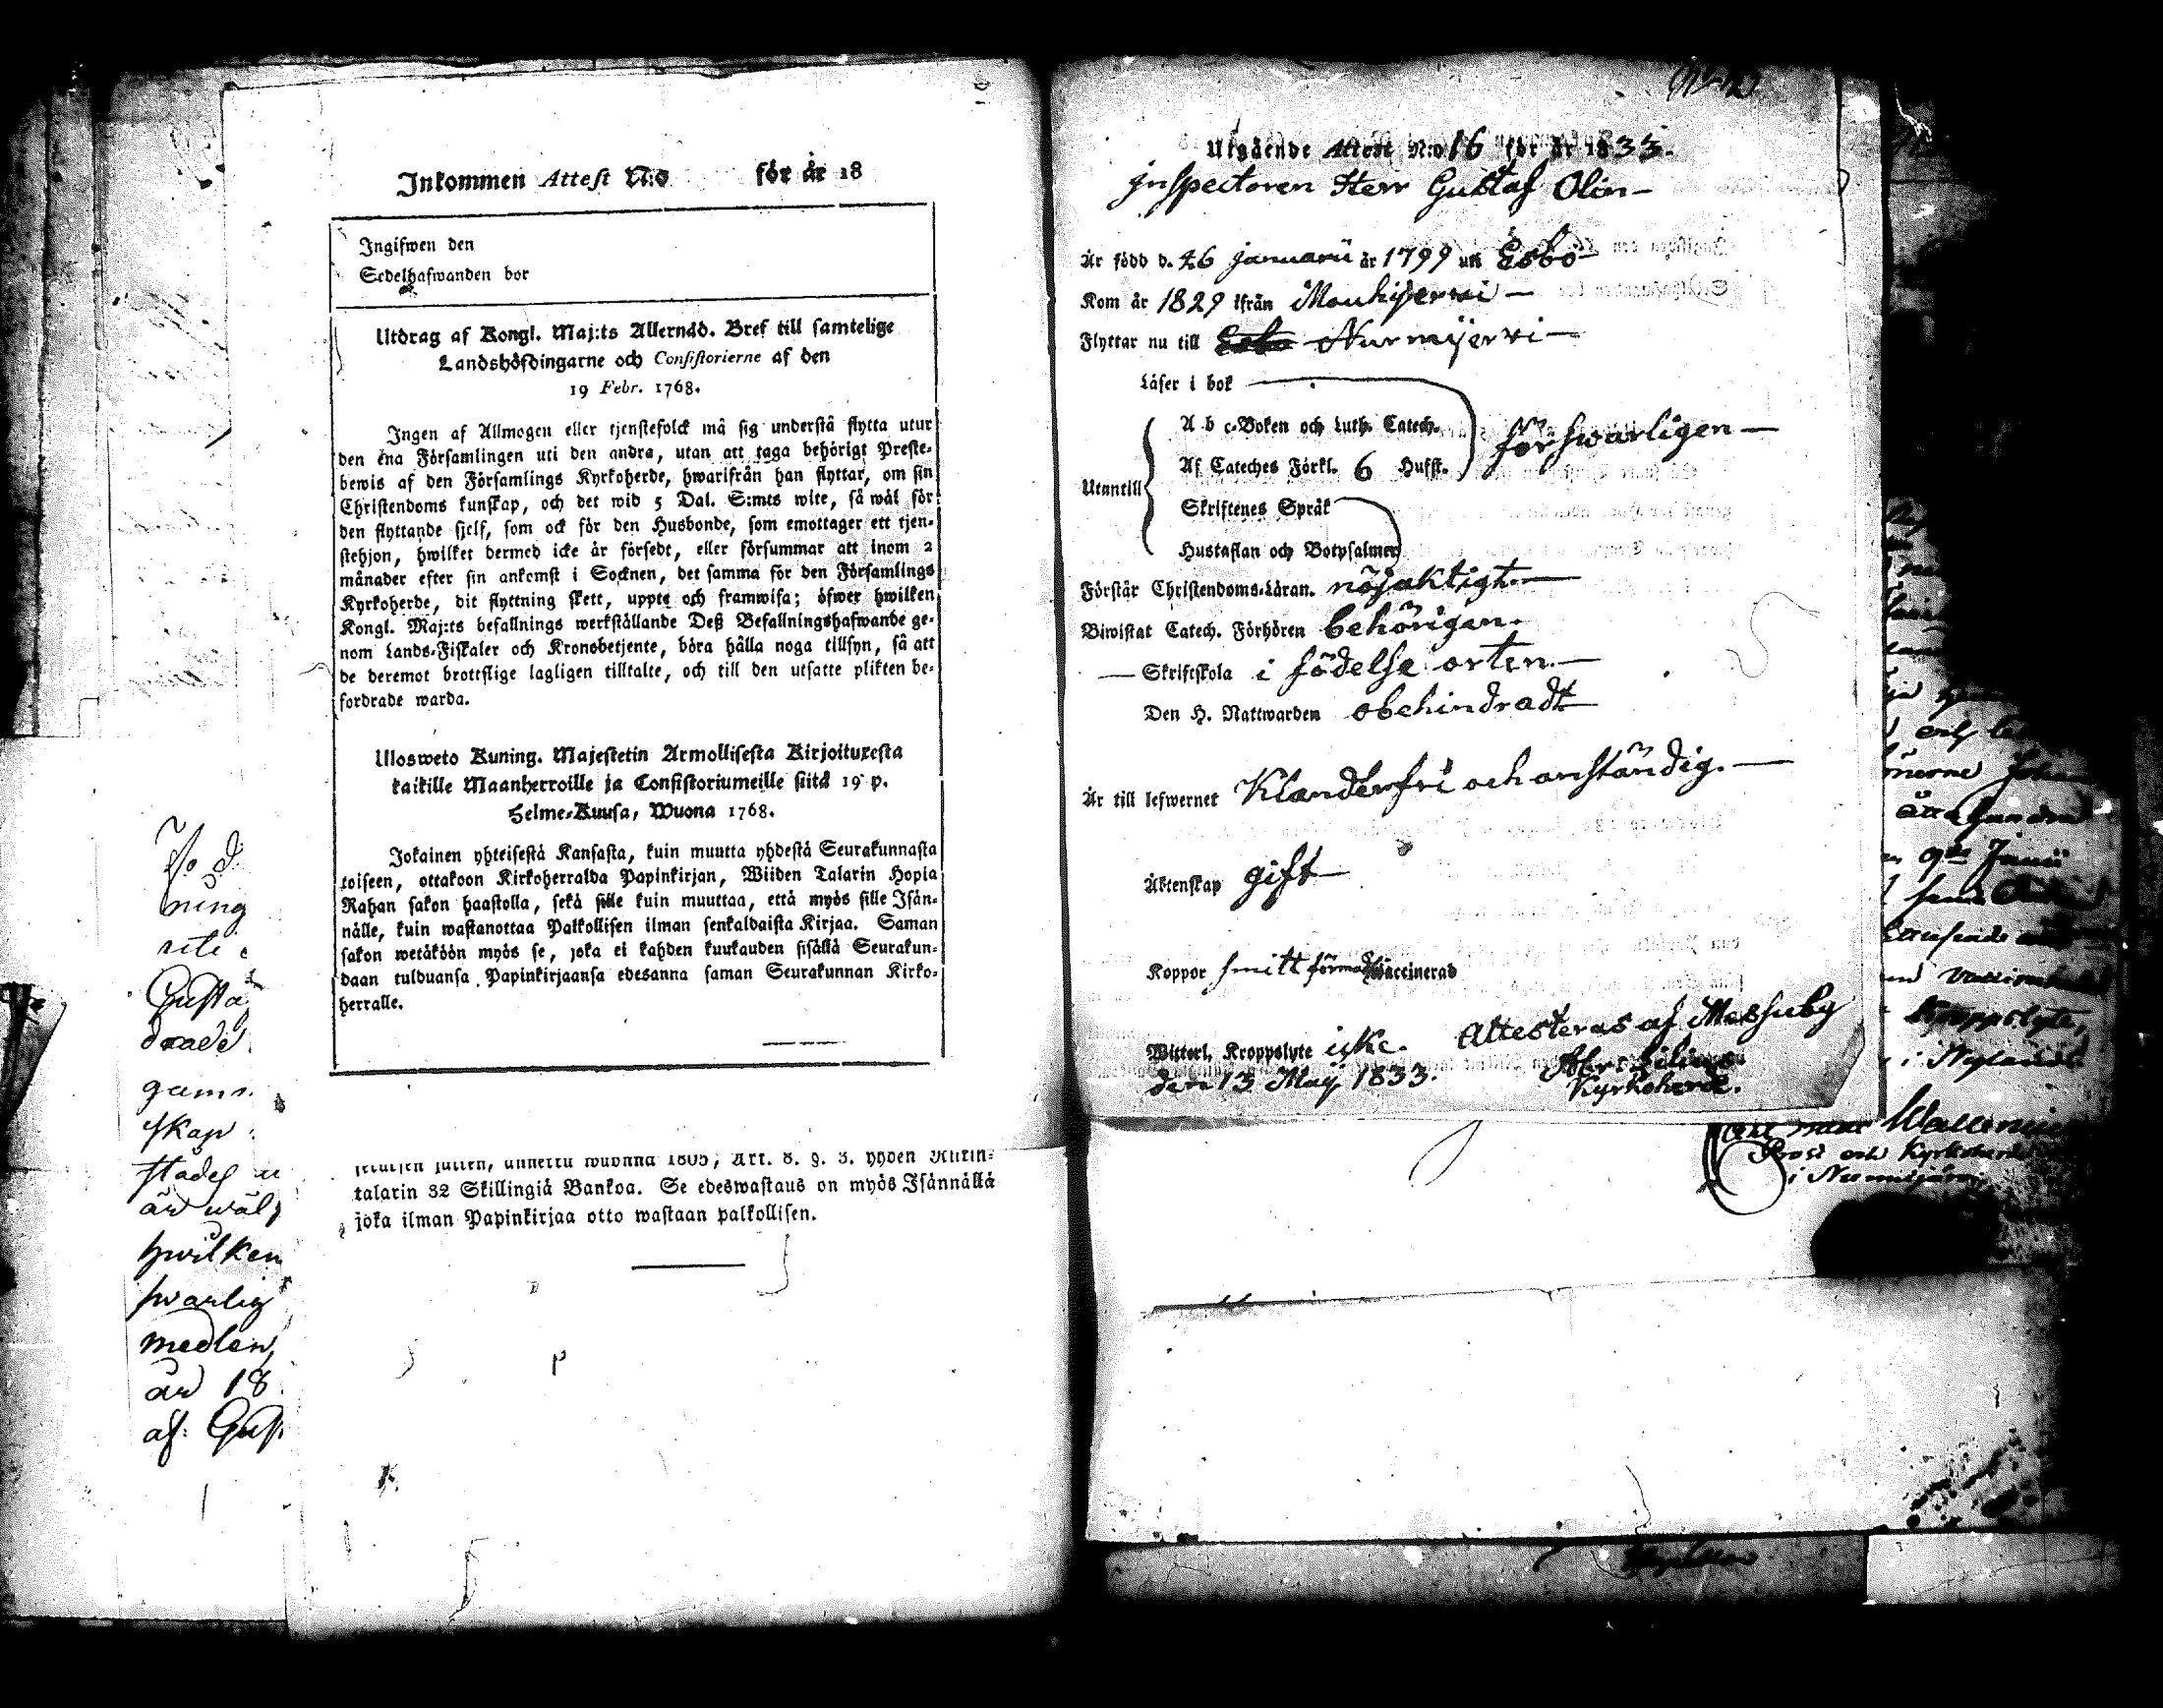 Inkommen Attest N:o för år 18
Ingifwen den
Sedelhafwanden bor
Utdrag af Kongl. Maj:ts Allernåd. Bref till samtelige
Landshöfdingarne och Consistorierne af den
19 Febr. 1768.
Ingen af Allmogen eller tjenstefolck må sig understå flytta utur
den ena Församlingen uti den andra, utan att taga behörigt Preste-
bewis af den Församlings Kyrkoherde, hwarifrån han flyttar, om sin
Christendoms kunskap, och det wid 5 Dal. S:mts wite, så wäl för
den flyttande sjelf, som ock för den Husbonde, som emottager ett tjen-
stehjon, hwilket dermed icke är försedt, eller försummar att inom 2
månader efter sin ankomst i Socknen, det samma för den Församlings
Kyrkoherde, dit flyttning skett, uppte och framwisa; öfwer hwilken
Kongl. Maj:ts befallnings werkställande Deß Befallningshafwande ge-
nom Lands-Fiskaler och Kronobetjente, böra hålla noga tillsyn, så att
de deremot brottslige lagligen tilltalte, och till den utsatte plikten be-
fordrade warda.
Ulosweto Kuning. Majestetin Armollisesta Kirjoituxesta
kaikille Maanherroille ja Consistoriumeille siitä 19 p.
Helme-Kuusa, Wuona 1768.
Jokainen yhteisestä Kansasta, kuin muutta yhdestä Seurakunnasta
toiseen, ottakoon Kirkoherralda Papinkirjan, Wiiden Talarin Hopia
Rahan sakon haastolla, sekä sille kuin muuttaa, että myös sille Isän-
nälle, kuin wastanottaa Palkollisen ilman senkaldaista Kirjaa. Saman
sakon wetäköön myös se, joka ei kahden kuukauden sisällä Seurakun-
daan tulduansa Papinkirjaansa edesanna saman Seurakunnan Kirko-
herralle.
talarin 32 Skillingiä Bankoa. Se edeswastaus on myös Isännällä
joka ilman Papinkirjaa otto wastaan palkollisen.
ning
Gusta
skap
är wäl
hwilken
swarlig
medlem,
är 18
af: Gus
Utgående Attest N:o 16 för år 1833.
Inspectoren Herr Gustaf Olin
Är född d. 26 januarii år 1799 uti Esbo
Kom år 1829 ifrån Mouhijerwi
Flyttar nu till Esbo Nurmijerwi
Läser i bok
A b c-Boken och Luth. Catech.
förswarligen
Af Cateches Förkl. 6 Hufst.
Utantill
Skriftenes Språk
Hustaflan och Botpsalmen
Förstår Christendoms-Läran. nöjaktigt.
Biwistat Catech. Förhören behörigen.
Skriftskola i födelse orten.
Den H. Nattwarden obehindradt
Är till lefwernet Klanderfri och anständig.
Äktenskap gift
Koppor smitt förmodl. Vaccinerad
Witterl. Kroppslyte icke. Attesteras af Messuby
den 13 Maij 1833.
Kyrkoherde.
Johan
åttahundra
Junii
Kroppslyte,
i Nylands
Prost och Kyrkoherde
i Nurmijärvi